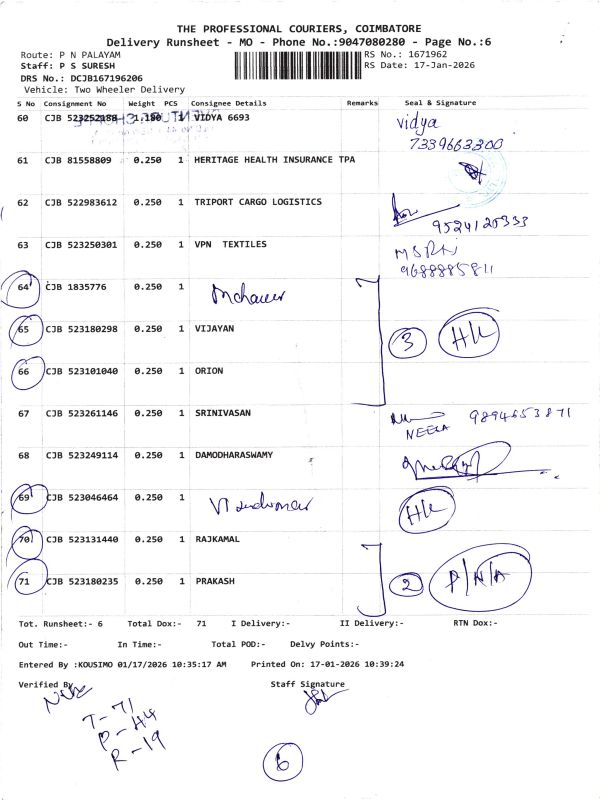 THE PROFESSIONAL COURIERS, COIMBATORE
Delivery Runsheet - MO - Phone No.:9047080280 - Page No.:6
Route: P N PALAYAM RS No.: 1671962
Staff: P S SURESH RS Date: 17-Jan-2026
DRS No.: DCJB167196206
Vehicle: Two Wheeler Delivery
S No Consignment No Weight PCS Consignee Details Remarks Seal & Signature
60 CJB 523252188 1.180 1 VIDYA 6693 vidya
7339663300
61 CJB 81558809 0.250 1 HERITAGE HEALTH INSURANCE TPA
62 CJB 522983612 0.250 1 TRIPORT CARGO LOGISTICS
9524125333
63 CJB 523250301 0.250 1 VPN TEXTILES
9688885811
64 CJB 1835776 0.250 1
65 CJB 523180298 0.250 1 VIJAYAN 3 HK
66 CJB 523101040 0.250 1 ORION
67 CJB 523261146 0.250 1 SRINIVASAN 9894653871
NEELA
68 CJB 523249114 0.250 1 DAMODHARASWAMY
69 CJB 523046464 0.250 1 HK
70 CJB 523131440 0.250 1 RAJKAMAL
71 CJB 523180235 0.250 1 PRAKASH 2 P/N/A
Tot. Runsheet:- 6 Total Dox:- 71 I Delivery:- II Delivery:- RTN Dox:-
Out Time:- In Time:- Total POD:- Delvy Points:-
Entered By :KOUSIMO 01/17/2026 10:35:17 AM Printed On: 17-01-2026 10:39:24
Verified By Staff Signature
T - 71
P - 44
R - 19
6